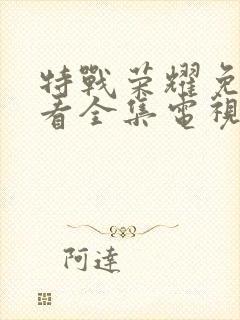 特戰荣耀免
看全集電視
阿達